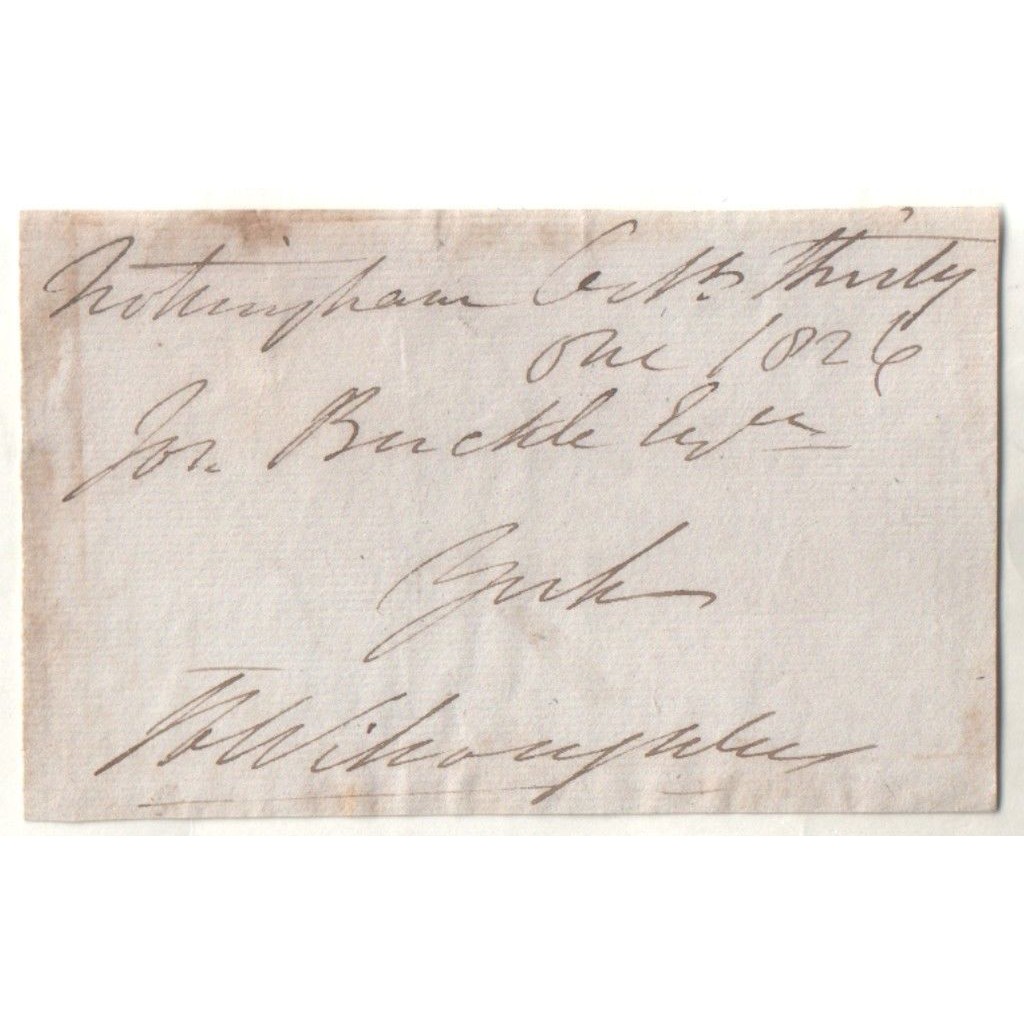 Nottingham Octr. Thirty
One 1826
Jon. Buckle Esqre
York
H Willoughby